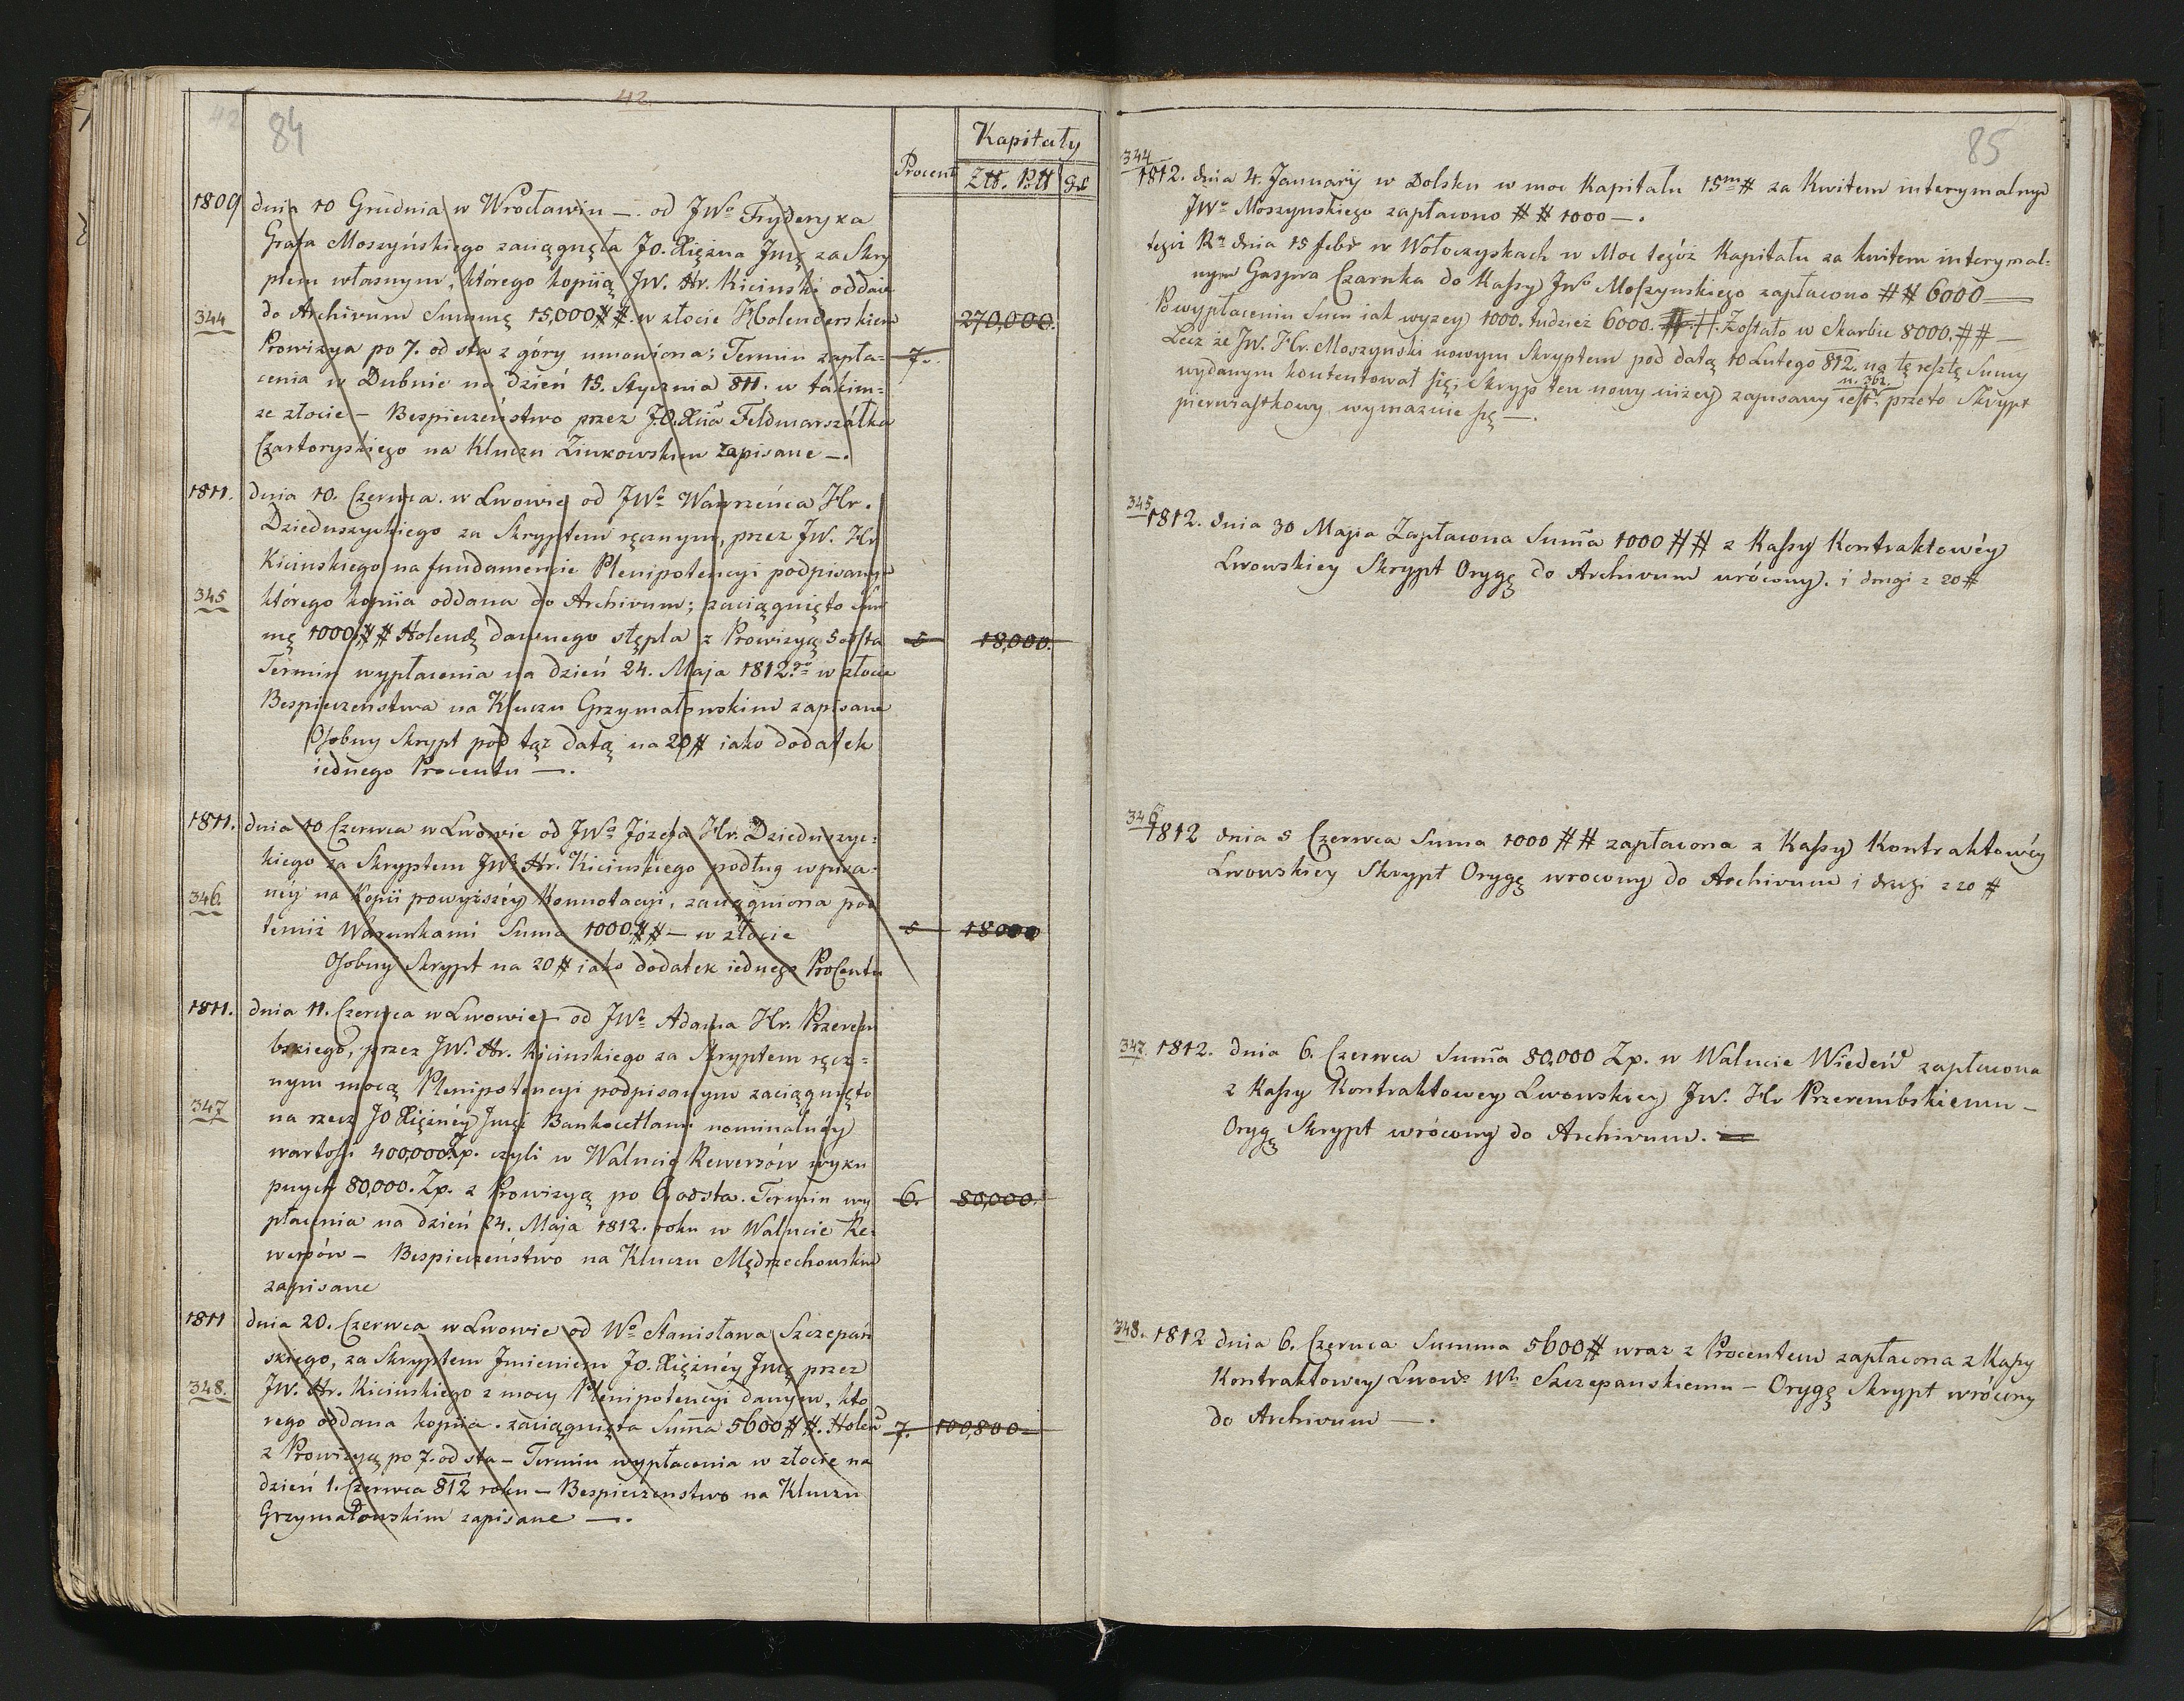 42
84
42
Procent
Kapitały
Złł. Pll
gr
1809 dnia 10 Grudnia w Wrocławiu —. od JWo Fryderyka
Grafa Moszyńskiego zaciągnęła JO. Xiężna Jmę za Skry
ptem własnym, którego kopiią JW. Hr. Kicinski oddaie
344 do Archivum Summę 15,000 ##. w złocie Holenderskiem 270,000.
Prowizya po 7. od sta z góry umowiona; Termin zapła= 7.
cenia w Dubnie na dzień 15. Stycznia 811. w takim=
ze złocie — Bespieczeństwo przez J.O. Xcia Feldmarszałka
Czartoryskiego na Kluczu Zinkowskim zapisane —.
1811. dnia 10. Czerwca. w Lwowie od JWo Wawrzeńca Hr.
Dzieduszyckiego za Skryptem ręcznym, przez JW. Hr
Kicinskiego na fundamencie Plenipotencyi podpisanym
345 którego kopiia oddana do Archivum; zaciągnięto Sum
mę 1000 ## Holend dawnego stępla z Prowizyą 5 od sta 5 18,000.
Termin wypłacenia na dzień 24. Maja 1812.go w złocie
Bespieczenstwa na Kluczu Grzymałowskim zapisane
Osobny Skrypt pod tąż datą na 20 # iako dodatek
iednego Procentu —.
1811. dnia 10 Czerwca w Lwowie od JWo Józefa Hr. Dzieduszyc=
kiego za Skryptem JWo Hr. Kicinskiego podług wpisa=
346. néy na Kopii powyższéy Konnotacyi, zaciągniona pod
temiż Warunkami Suma 1000 ## — w złocie 5 18000
Osobny Skrypt na 20 # iako dodatek iednego Procentu
1811. dnia 11. Czerwca w Lwowie — od JWo Adama Hr. Przerem
bskiego, przez JW. Hr. Kicinskiego za Skryptem ręcz=
nym mocą Plenipotencyi podpisanym zaciągnięto
347 na rzecz JO Xiężnéy Jmci Bankocetlami nominalnéy
wartości 400,000 Zp. czyli w Walucie Rewersów wyku
pnych 80,000. Zp. z Prowizyą po 6. od sta. Termin wy 6. 80,000.
płacenia na dzień 24. Maja 1812. roku w Walucie Re=
wersów — Bespieczeństwo na Kluczu Mędrzechowskim
zapisane
1811 dnia 20. Czerwca w Lwowie od Wo Stanisława Szczepań
skiego, za Skryptem Jmieniem JO. Xiężnéy Jmę przez
348. JW. Hr. Kicinskiego z mocy Plenipotencyi danym, któ
rego oddana kopiia. zaciągnięta Suma 5600 ##. Holen 7. 100,800
z Prowizyą po 7. od sta — Termin wypłacenia w złocie na
dzień 1. Czerwca 812 roku — Bespieczenstwo na Kluczu
Grzymałowskim zapisane —.
85
344
1812. dnia 4. Januarij w Dolsku w moc Kapitału 15m # za Kwitem interymalnym
JWo Moszynskiego zapłacono ## 1000 —.
tegoż Ru dnia 15 febr w Wołoczyskach w Moc tegóż Kapitału za kwitem interymal=
nym Gaspra Czarnka do Kassy JWo Moszynskiego zapłacono ## 6000 —
Po wypłaceniu Sum iak wyzey 1000. tudzież 6000. ##. Zostało w Skarbie 8000. ## —
Lecz że JW. Hr. Moszynski nowym Skryptem pod datą 10 Lutego 812. na tę resztę Sumy
wydanym kontentował się; Skryp ten nowy niżey zapisany iest n. 362. przeto Skrypt
pierwiastkowy wymazuie się —.
345
1812. dnia 30 Maja Zapłacona Suma 1000 ## z Kassy Kontraktowéy
Lwowskiey Skrypt Oryg do Archivum wrócony. i drugi z 20 #
346
1812 dnia 5 Czerwca Suma 1000 ## zapłacona z Kassy Kontraktowéy
Lwowskiey Skrypt Oryg wrocony do Archivum i drugi z 20 #
347. 1812. dnia 6. Czerwca Suma 80,000 Zp. w Walucie Wiedeń zapłacona
z Kassy Kontraktowey Lwowskiey JW. Hr Przerembskiemu —
Oryg Skrypt wrócony do Archivum.
348. 1812 dnia 6. Czerwca Summa 5600 # wraz z Procentem zapłacona z Kassy
Kontraktowey Lwows Wu Szczepanskiemu — Oryg Skrypt wrócony
do Archivum —.